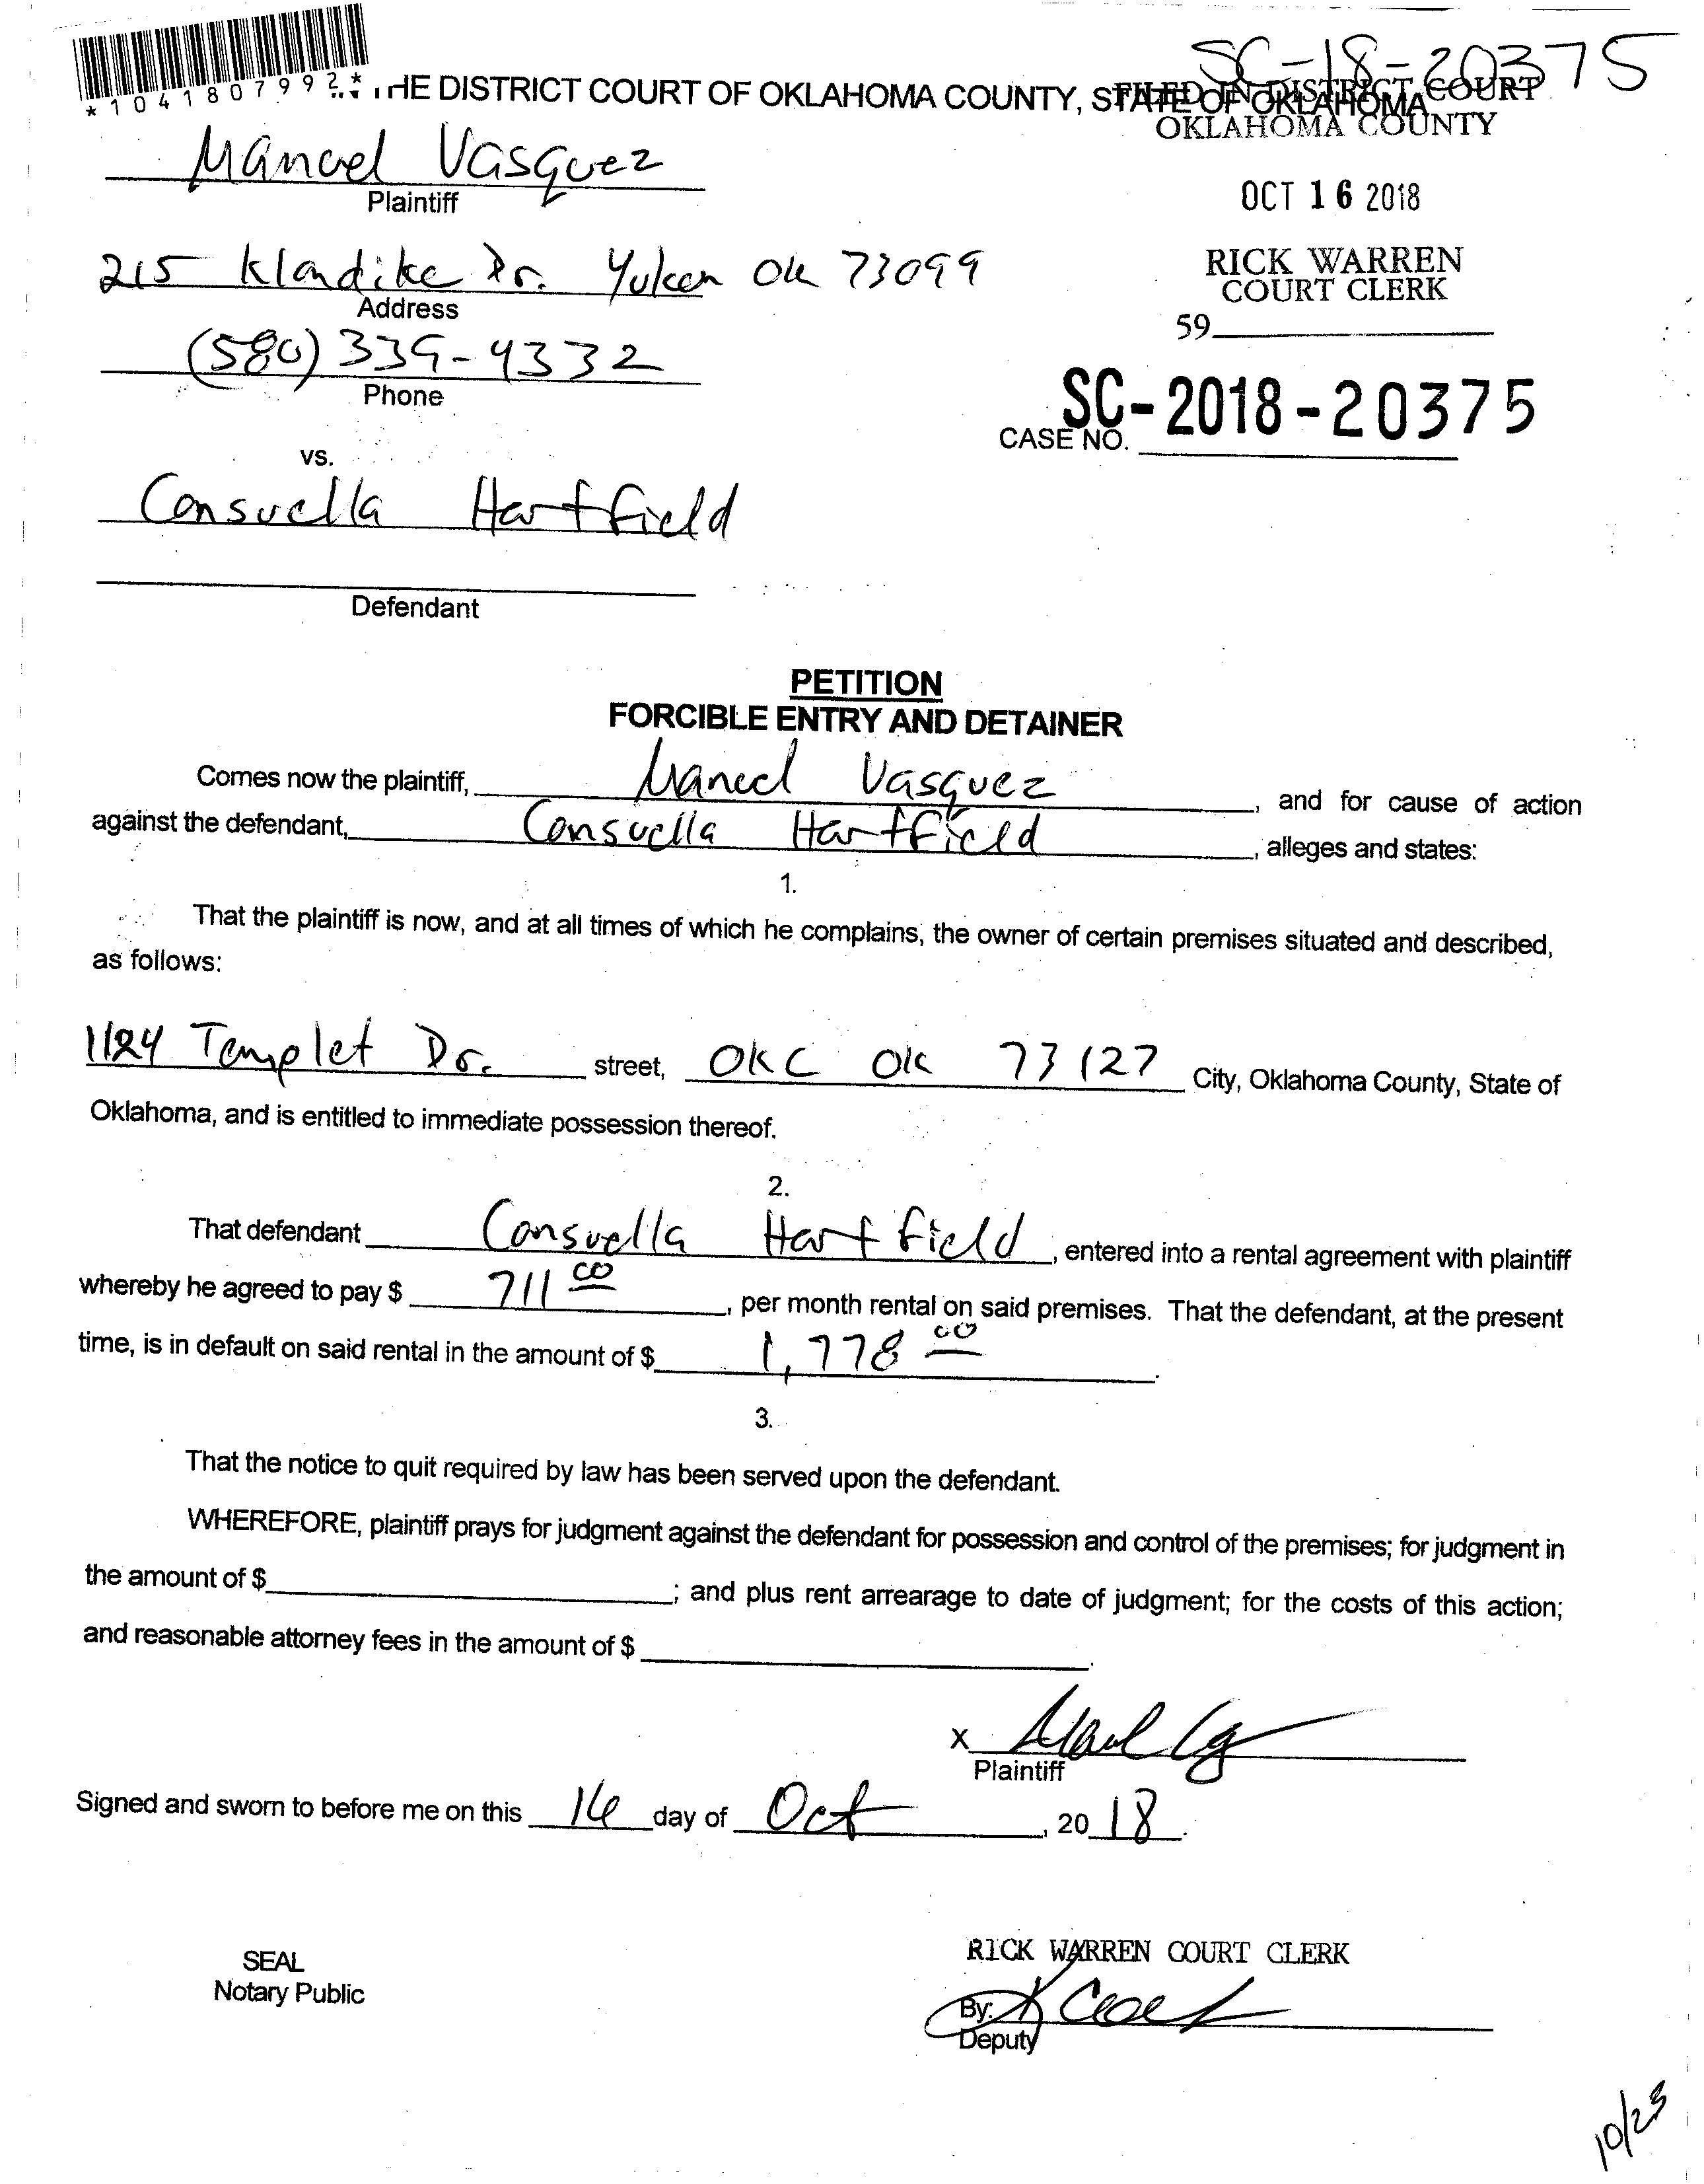 SC-18-20375
*1041807992*
THE DISTRICT COURT OF OKLAHOMA COUNTY, STATE OF OKLAHOMA
FILED IN DISTRICT COURT
OKLAHOMA COUNTY
Manuel Vasquez
Plaintiff
OCT 16 2018
215 Klondike Dr. Yukon Ok 73099
Address
RICK WARREN
COURT CLERK
59
(580) 339-4332
Phone
SC-2018-20375
CASE NO.
vs.
Consuella Hartfield
Defendant
PETITION
FORCIBLE ENTRY AND DETAINER
Comes now the plaintiff, Manuel Vasquez, and for cause of action
against the defendant, Consuella Hartfield, alleges and states:
1.
That the plaintiff is now, and at all times of which he complains, the owner of certain premises situated and described,
as follows:
1124 Templet Dr. street, OKC Ok 73127 City, Oklahoma County, State of
Oklahoma, and is entitled to immediate possession thereof.
2.
That defendant Consuella Hartfield, entered into a rental agreement with plaintiff
whereby he agreed to pay $ 711 00, per month rental on said premises. That the defendant, at the present
time, is in default on said rental in the amount of $ 1,778 00.
3.
That the notice to quit required by law has been served upon the defendant.
WHEREFORE, plaintiff prays for judgment against the defendant for possession and control of the premises; for judgment in
the amount of $ ; and plus rent arrearage to date of judgment; for the costs of this action;
and reasonable attorney fees in the amount of $ .
X
Plaintiff
Signed and sworn to before me on this 16 day of Oct, 20 18.
SEAL
Notary Public
RICK WARREN COURT CLERK
By:
Deputy
10/23